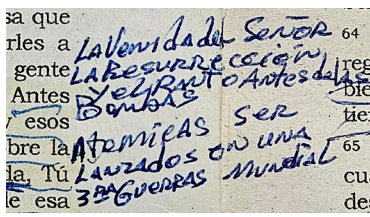 sa que
rles a
gente
Antes
esos
bre la
da, Tú
e esa
LA VENIDA del SEÑOR
LA RESURRECCIÓN
Y el RANTO ANTES de LAS
BOMBAS
ATOMICAS SER
LANZADOS EN UNA
3RA GUERRAS MUNDIAL
64
reg
bie
tie
65
cu
de